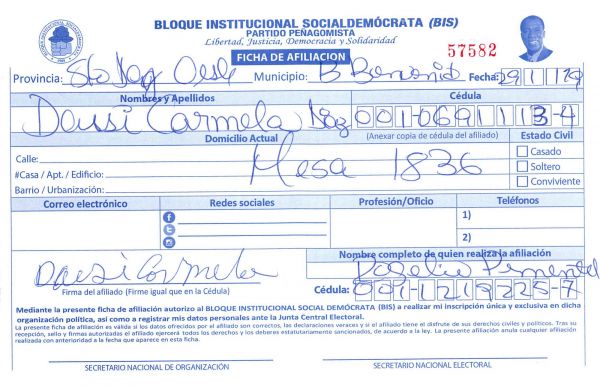 BLOQUE INSTITUCIONAL SOCIALDEMÓCRATA (BIS)
PARTIDO PEÑAGOMISTA
Libertad, Justicia, Democracia y Solidaridad
57582
FICHA DE AFILIACION
Provincia: Sto Dgo Oeste Municipio: Fecha: 29/1/19
Nombres y Apellidos Cédula
Daysi Carmela 001-0691113-4
Domicilio Actual (Anexar copia de cédula del afiliado) Estado Civil
Calle: Mesa 1836 Casado
#Casa / Apt. / Edificio: Soltero
Barrio / Urbanización: Conviviente
Correo electrónico Redes sociales Profesión/Oficio Teléfonos
1)
2)
Nombre completo de quien realiza la afiliación
Daysi Carmela Rogelio Pimentel
Firma del afiliado (Firme igual que en la Cédula) Cédula: 001-1219225-7
Mediante la presente ficha de afiliación autorizo al BLOQUE INSTITUCIONAL SOCIAL DEMÓCRATA (BIS) a realizar mi inscripción única y exclusiva en dicha
organización política, así como a registrar mis datos personales ante la Junta Central Electoral.
La presente ficha de afiliación es válida si los datos ofrecidos por el afiliado son correctos, las declaraciones veraces y si el afiliado tiene el disfrute de sus derechos civiles y políticos. Tras su
recepción, sello y firmas autorizadas el afiliado ejercerá todos los derechos y los deberes estatutariamente sancionados, de acuerdo a la ley. La presente afiliación anula cualquier afiliación
realizada con anterioridad a la fecha que aparece en esta ficha.
SECRETARIO NACIONAL DE ORGANIZACIÓN SECRETARIO NACIONAL ELECTORAL